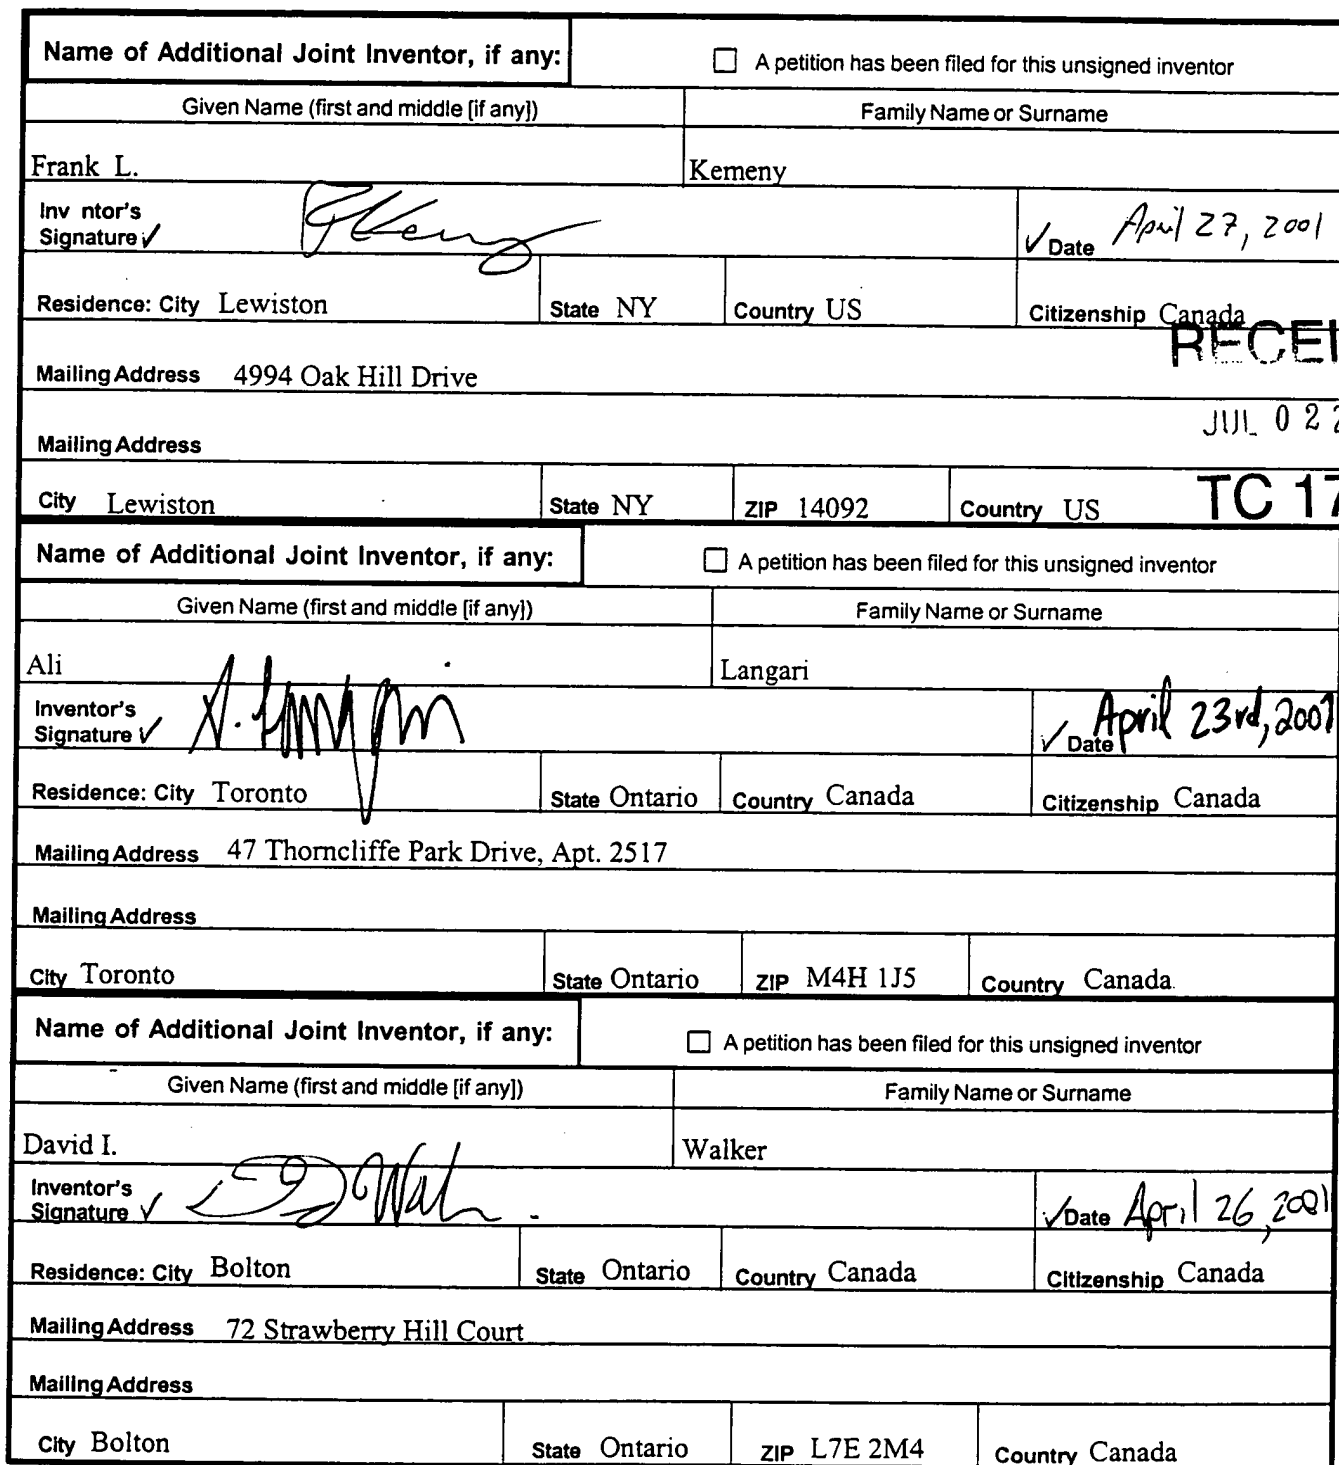 Name of Additional Joint Inventor, if any: ☐ A petition has been filed for this unsigned inventor
Given Name (first and middle [if any]) Family Name or Surname
Frank L. Kemeny
Inv ntor's
Signature ✓ ✓ Date April 27, 2001
Residence: City Lewiston State NY Country US Citizenship Canada
RECEI
Mailing Address 4994 Oak Hill Drive
JUL 02 2
Mailing Address
City Lewiston State NY ZIP 14092 Country US TC 17
Name of Additional Joint Inventor, if any: ☐ A petition has been filed for this unsigned inventor
Given Name (first and middle [if any]) Family Name or Surname
Ali Langari
Inventor's
Signature ✓ A. Langari ✓ Date April 23rd, 2001
Residence: City Toronto State Ontario Country Canada Citizenship Canada
Mailing Address 47 Thorncliffe Park Drive, Apt. 2517
Mailing Address
City Toronto State Ontario ZIP M4H 1J5 Country Canada
Name of Additional Joint Inventor, if any: ☐ A petition has been filed for this unsigned inventor
Given Name (first and middle [if any]) Family Name or Surname
David I. Walker
Inventor's
Signature ✓ ✓ Date April 26, 2001
Residence: City Bolton State Ontario Country Canada Citizenship Canada
Mailing Address 72 Strawberry Hill Court
Mailing Address
City Bolton State Ontario ZIP L7E 2M4 Country Canada